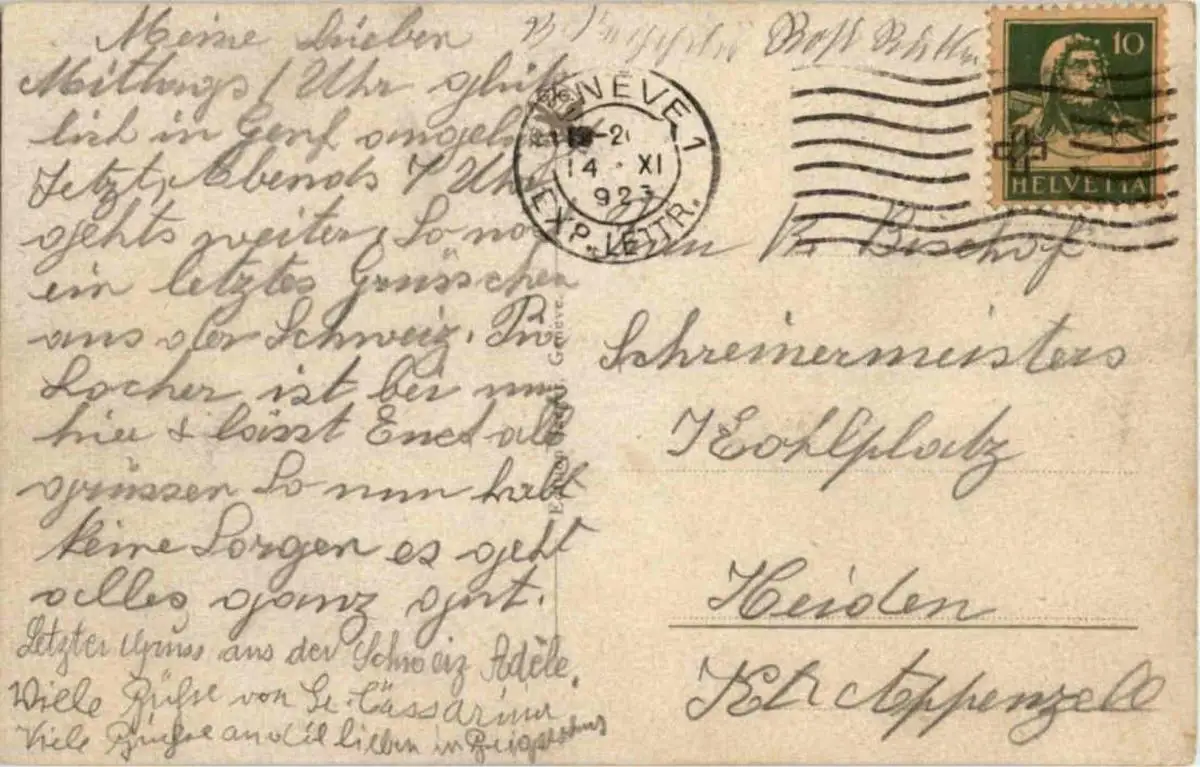 Meine Lieben
Mittags 1 Uhr glük
lich in Genf angelangt
Jetzt, Abends 7 Uhr
gehts weiter, So noch
ein letztes Grüsschen
aus der Schweiz.
Locher ist bei uns
hier & lässt Euch alle
grüssen So nun habt
keine Sorgen es geht
alles ganz gut.
Letzter Gruss aus der Schweiz Adèle.
Viele Grüsse von
Viele Grüsse an die lieben in
GENEVE 1
14 XI
923
EXP. LETTR.
10
HELVETIA
Bischof
Schreinermeisters
Kohlplatz
Heiden
Kt Appenzell
Genève.